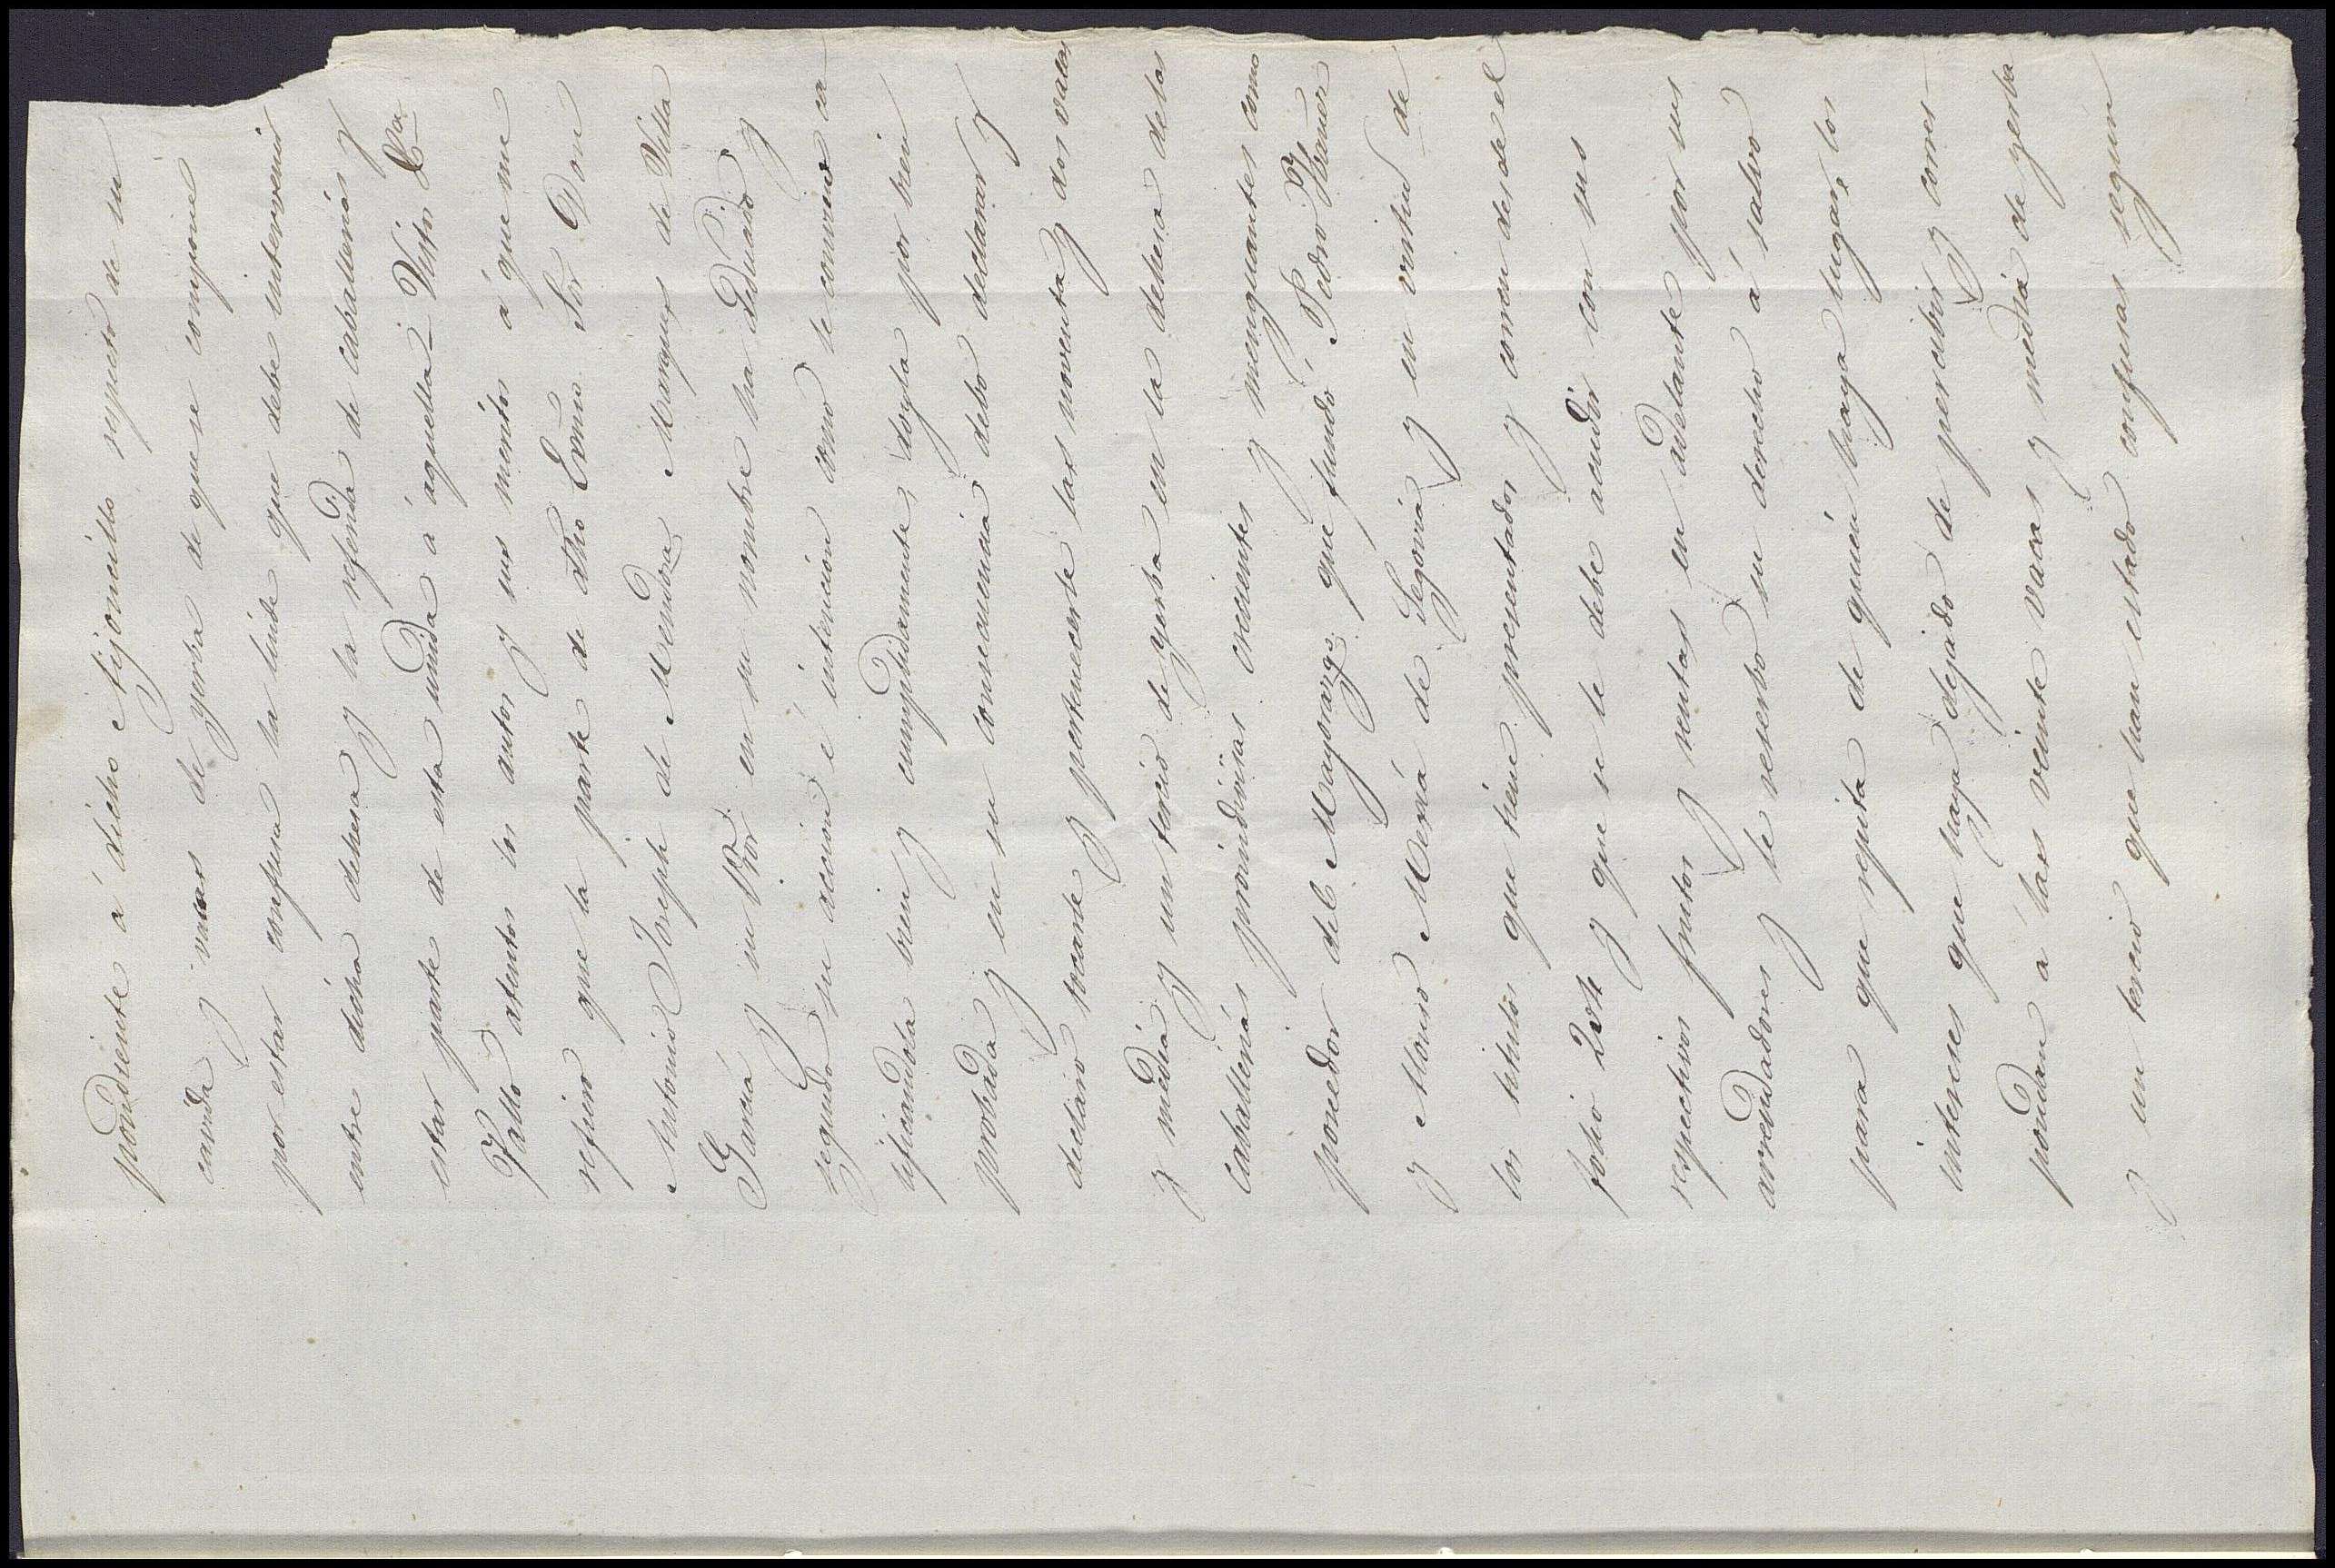 pondiente á dicho Nijoncillo respecto de su
cavida y vacas de yerba de que se compone
por estar confusa la linde que debe intervenir
entre dicha dehesa y la referida de caballerias y
estar parte de esta unida á aquella = Vistos &a
Fallo atentos los autos y sus meritos á que me
refiero que la parte de dho Exmo Sor Don
Antonio Joseph de Mendoza Marques de Villa
Garcia y su Pror en su nombre ha deducido y
segundo su accion é intencion como le convino ca
lificandola bien y cumplidamente doyla por bien
probada y en su consecuencia debo declarar y
declaro tocarle y pertenecerle las noventa y dos vacas
y media y un tercio de yerba en la dehesa de las
Caballerias proindivisas crecientes y menguantes como
poseedor del Mayorazgo que fundó Pedro Ybañez
y Alonso Mexia de Segovia y en virtud de
los titulos que tiene presentados y corren desde el
folio 204 y que se le debe acudir con sus
respectivos frutos y rentas en adelante por sus
arrendadores y le reserbo su derecho á salvo
para que repita de quien haya lugar los
intereses que haya dejado de percibir y corres-
pondan a las veinte vacas y media de yerba
y un tercio que han estado confusas segun